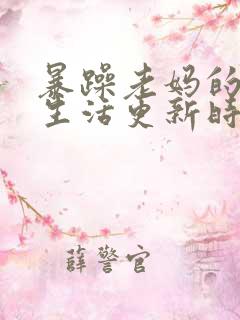 暴躁老妈的
生活更新时
薛警官